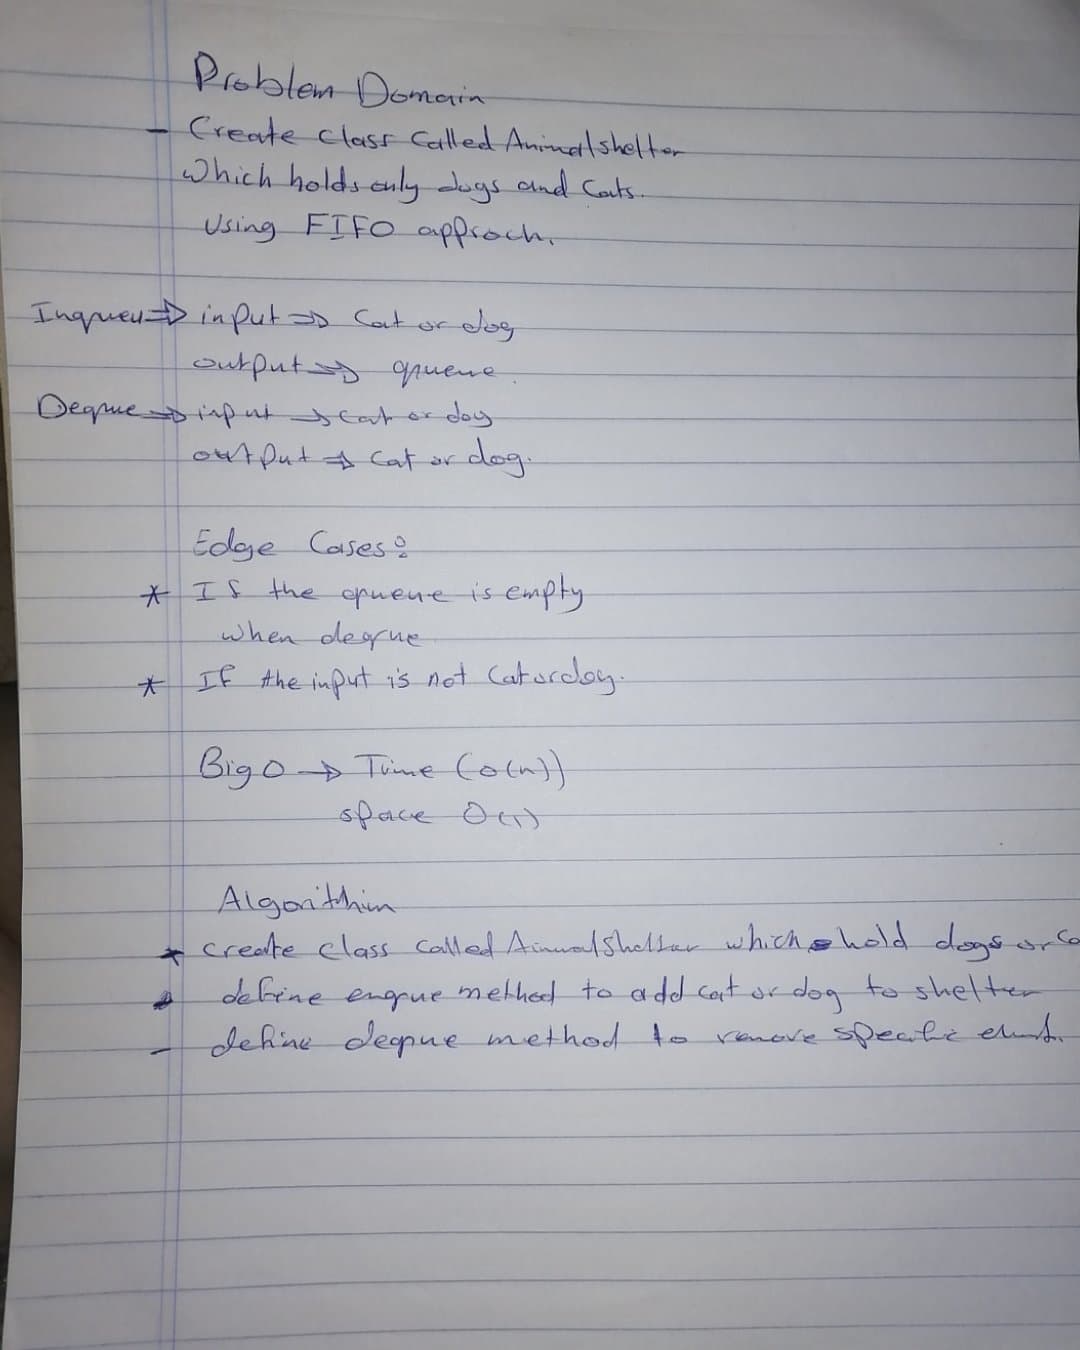 Problem Domain
- Create class Called Animalshelter
Which holds only dogs and Cats.
Using FIFO approch.
Inqueu => input => Cat or dog
output => queue.
Deque => input => cat or dog
output => Cat or dog.
Edge Cases:
* If the queue is empty
when deque
* If the input is not Cat or dog.
Big O -> Time (O(n))
space O(1)
Algorithim
* create class called AnimalShelter which hold dogs or Ca
define enque method to add cat or dog to shelter
- define deque method to remove specific